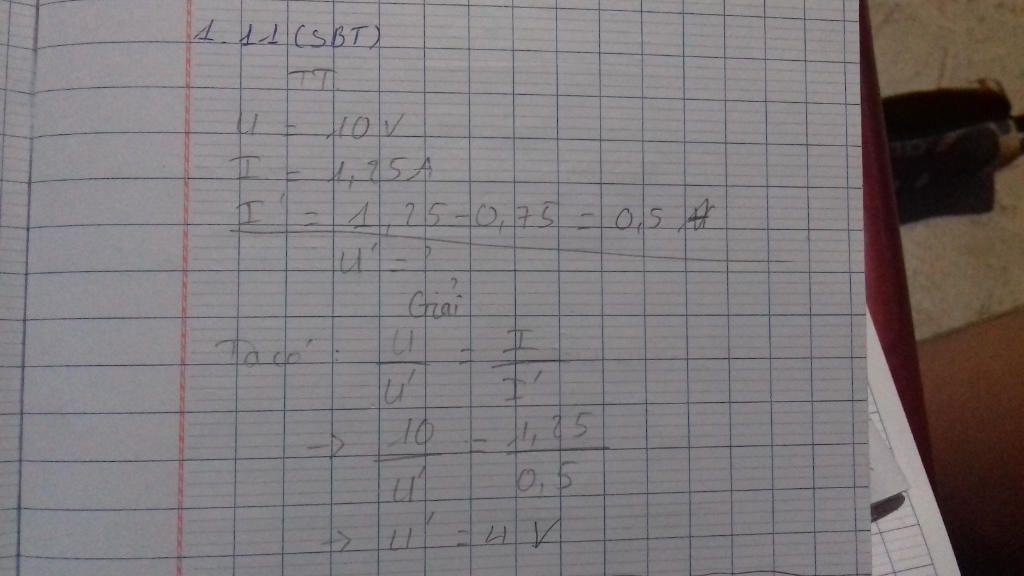 1.11 (SBT)
TT
U = 10 V
I = 1,25A
I' = 1,25 - 0,75 = 0,5 A
U' = ?
Giải
Ta có: U/U' = I/I'
→ 10/U' = 1,25/0,5
→ U' = 4 V